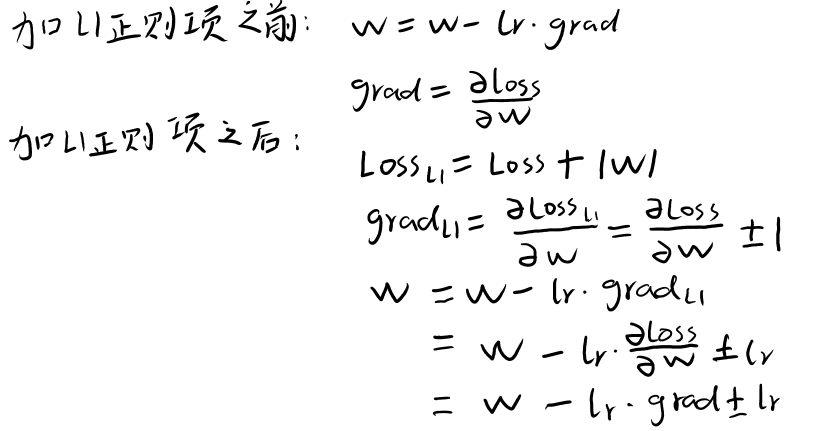 加L1正则项之前: w = w - lr · grad
grad = ∂Loss/∂w
加L1正则项之后:
Loss_L1 = Loss + |w|
grad_L1 = ∂Loss_L1/∂w = ∂Loss/∂w ± 1
w = w - lr · grad_L1
= w - lr · ∂Loss/∂w ± lr
= w - lr · grad ± lr